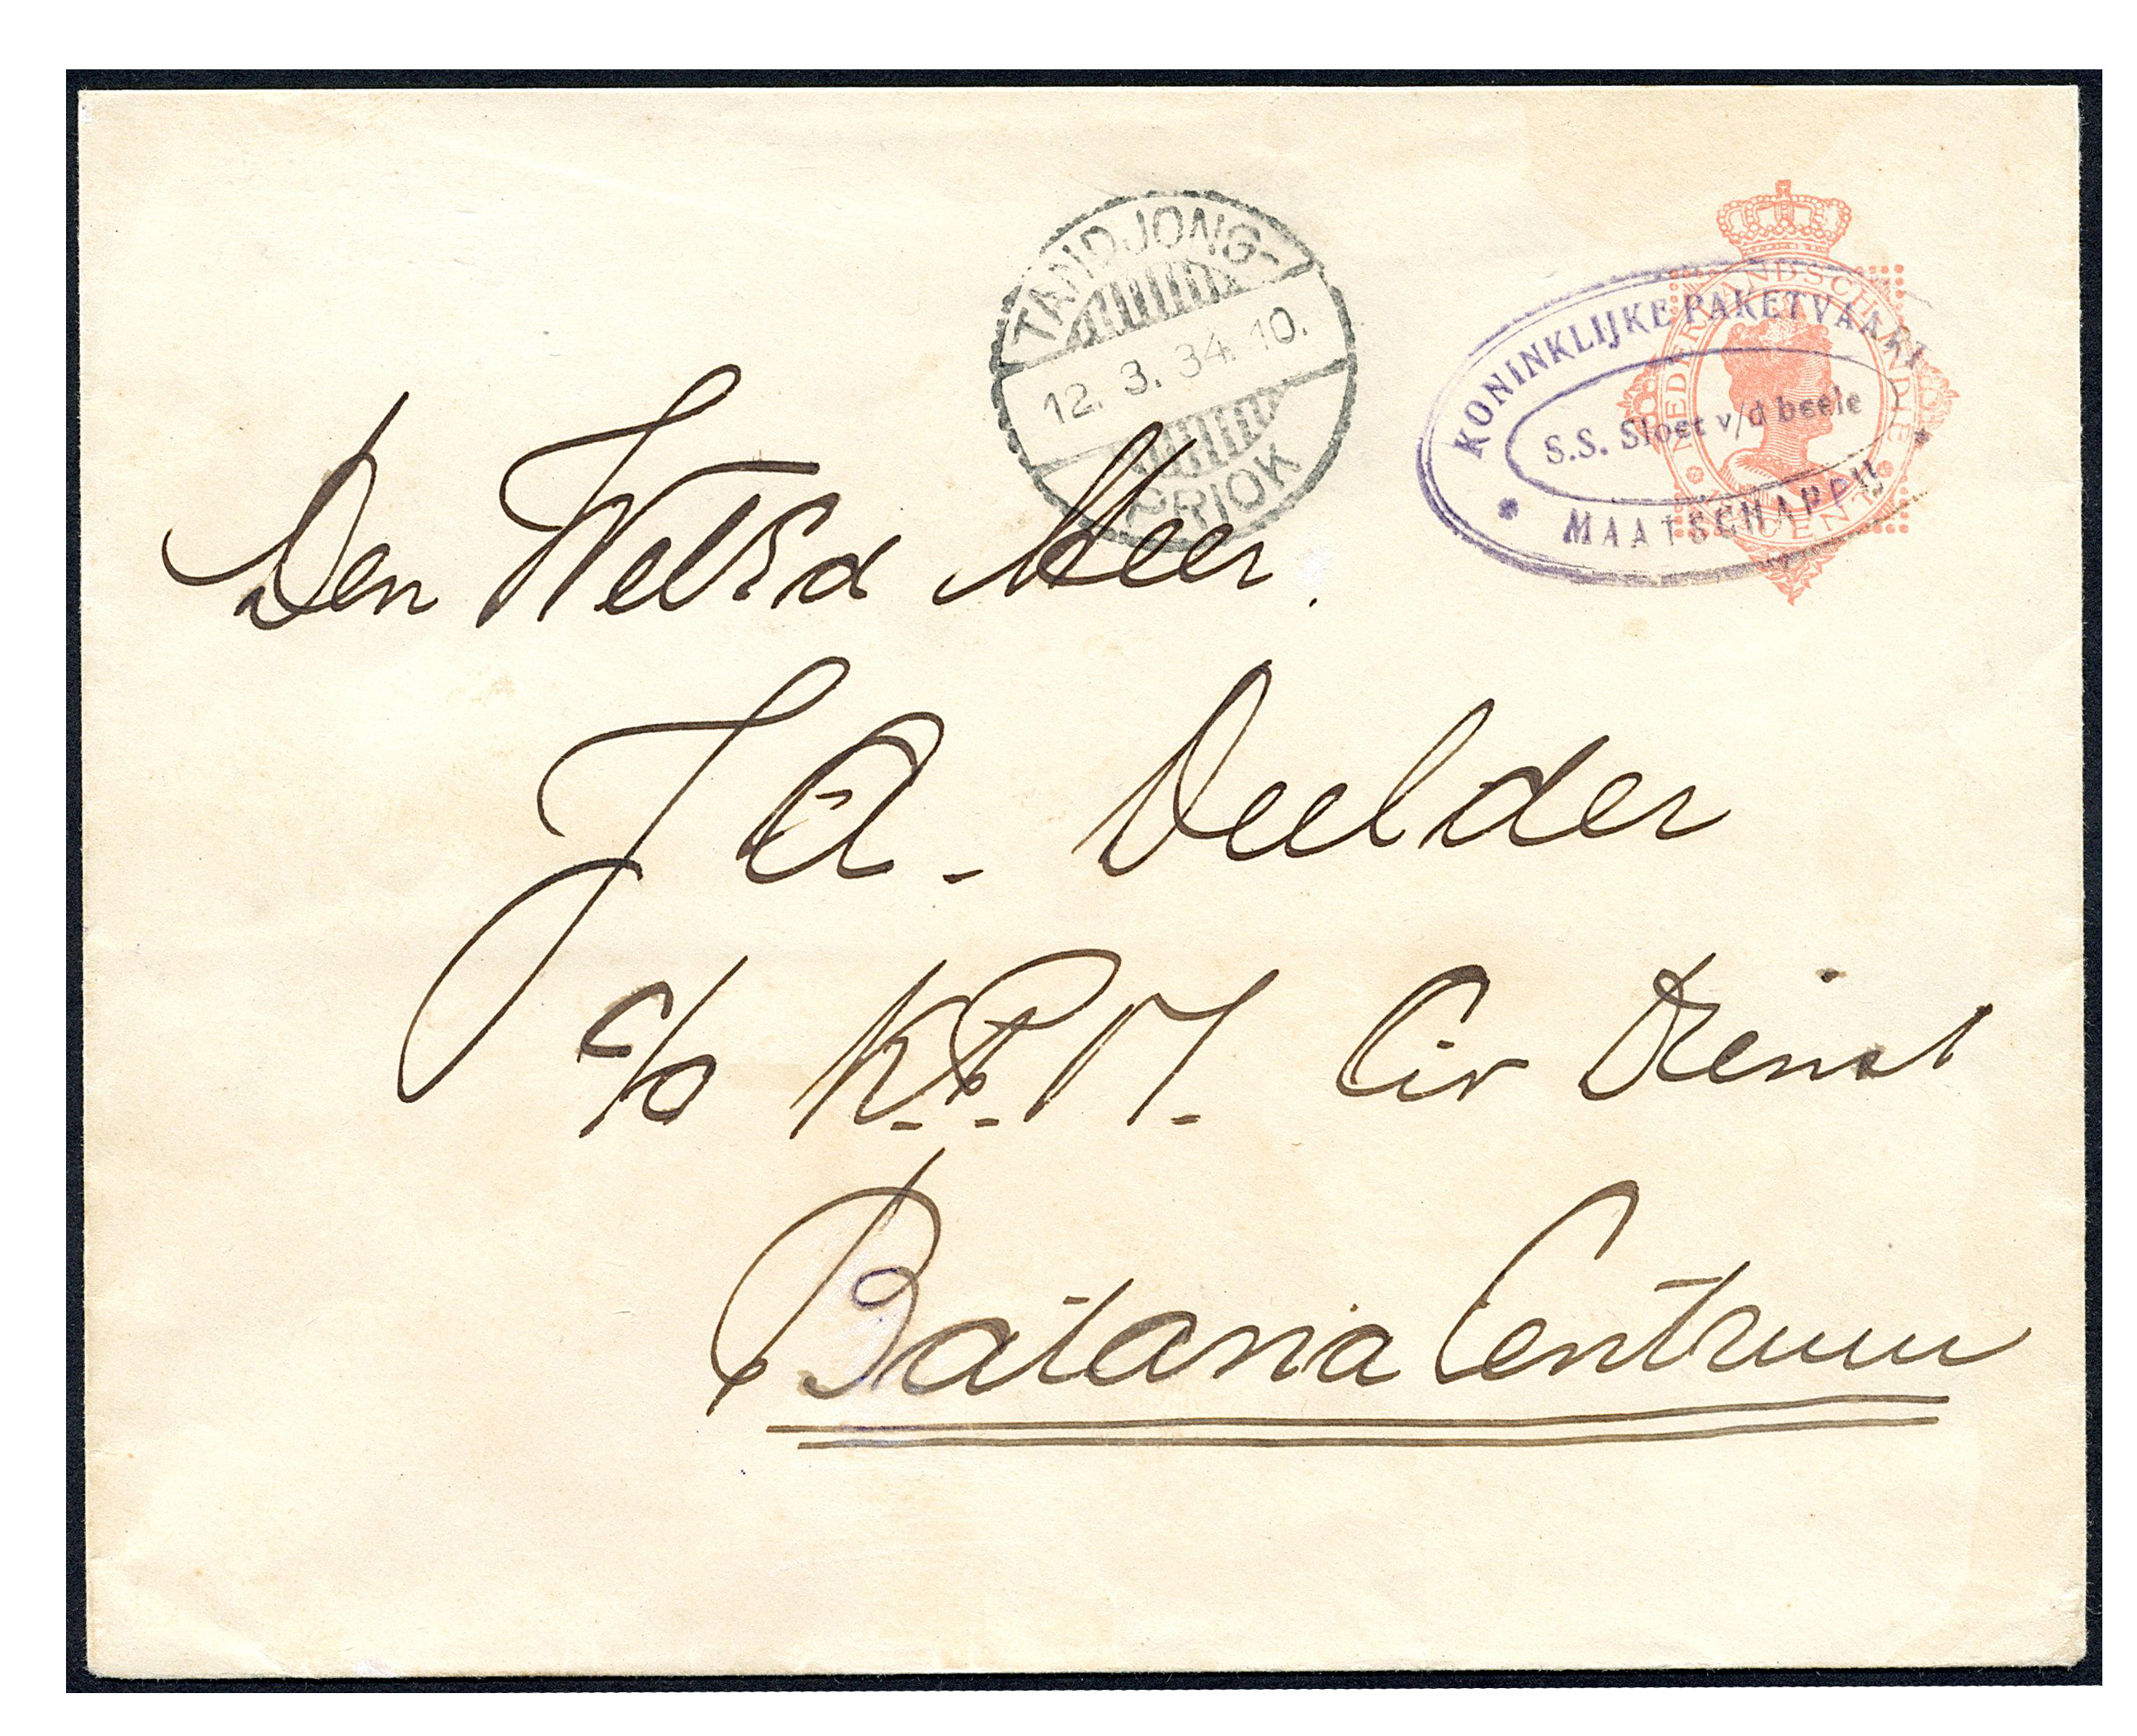 TANDJONG-
12. 3. 34. 10.
PRIOK
KONINKLIJKE PAKETVAART
S.S. Sloet v/d beele
MAATSCHAPPIJ
NEDERLANDSCH INDIE
CENT
Den WelEd Heer.
J A. Deelder
c/o K.P.M. Civ Dienst
Batavia Centrum